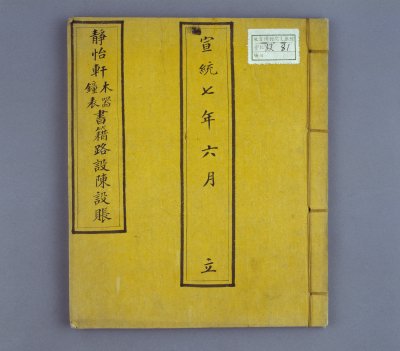 宣統七年六月 立
靜怡軒木器鐘表書籍路設陳設賬
81